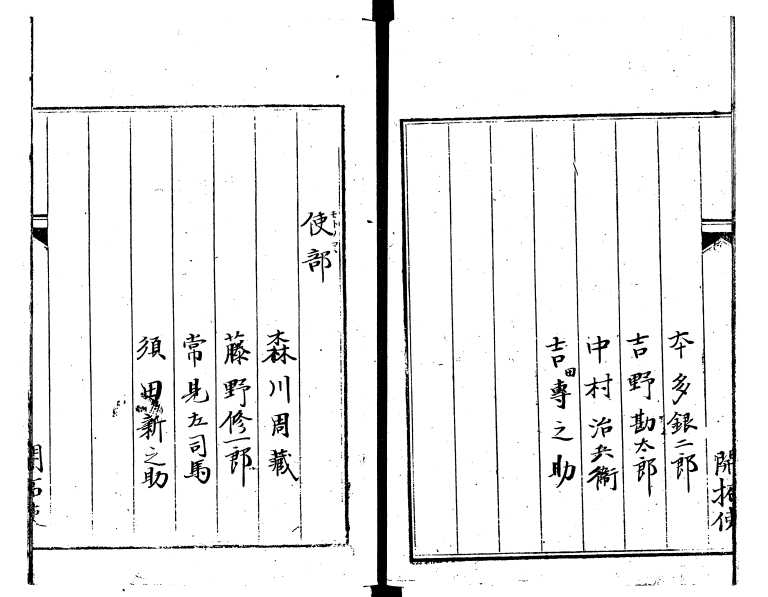 開拓使
本多銀二郎
吉野勘太郎
中村治兵衛
吉田專之助
使部
森川周藏
藤野修一郎
常見左司馬
須田新之助
開拓使